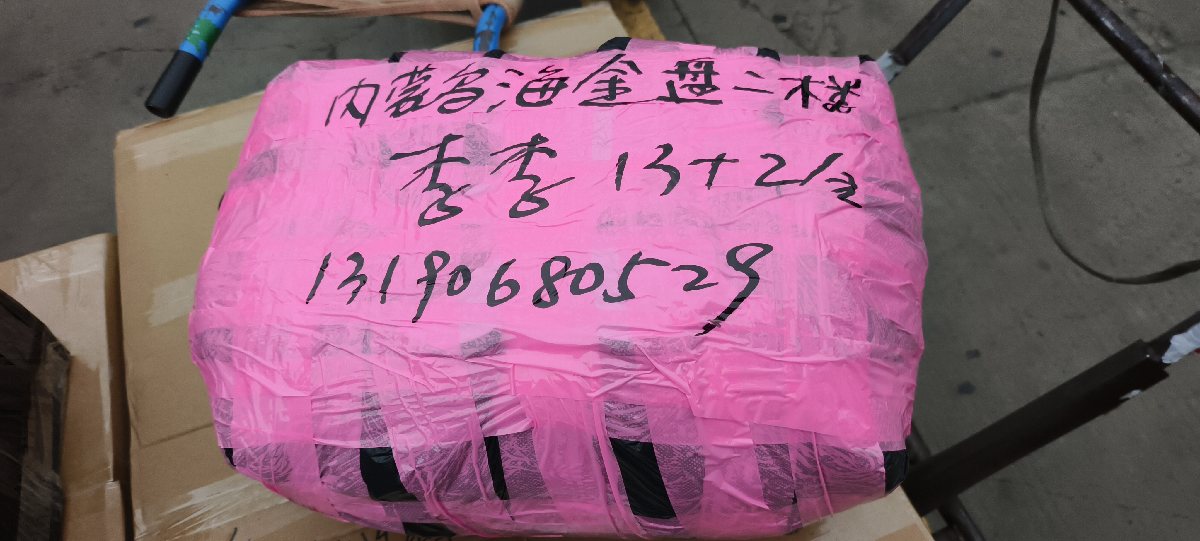 内蒙乌海金盘二楼
李李 13+2/包
13190680529